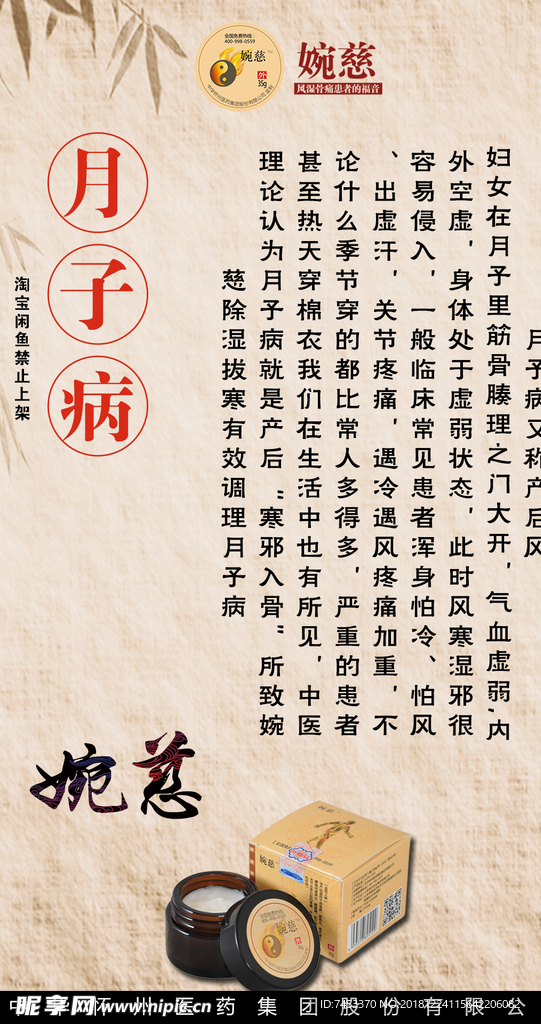 全国免费热线：
400-998-0559
婉慈
外
35g
婉慈
风湿骨痛患者的福音
月子病
淘宝闲鱼禁止上架
月子病又称产后风
妇女在月子里筋骨腠理之门大开，气血虚弱，内
外空虚，身体处于虚弱状态，此时风寒湿邪很
容易侵入，一般临床常见患者浑身怕冷、怕风
、出虚汗，关节疼痛，遇冷遇风疼痛加重，不
论什么季节穿的都比常人多得多，严重的患者
甚至热天穿棉衣我们在生活中也有所见，中医
理论认为月子病就是产后“寒邪入骨”所致婉
慈除湿拔寒有效调理月子病
婉慈
婉慈
婉慈
外
婉慈
昵享网 www.nipic.cn
州医药集团股份有限公